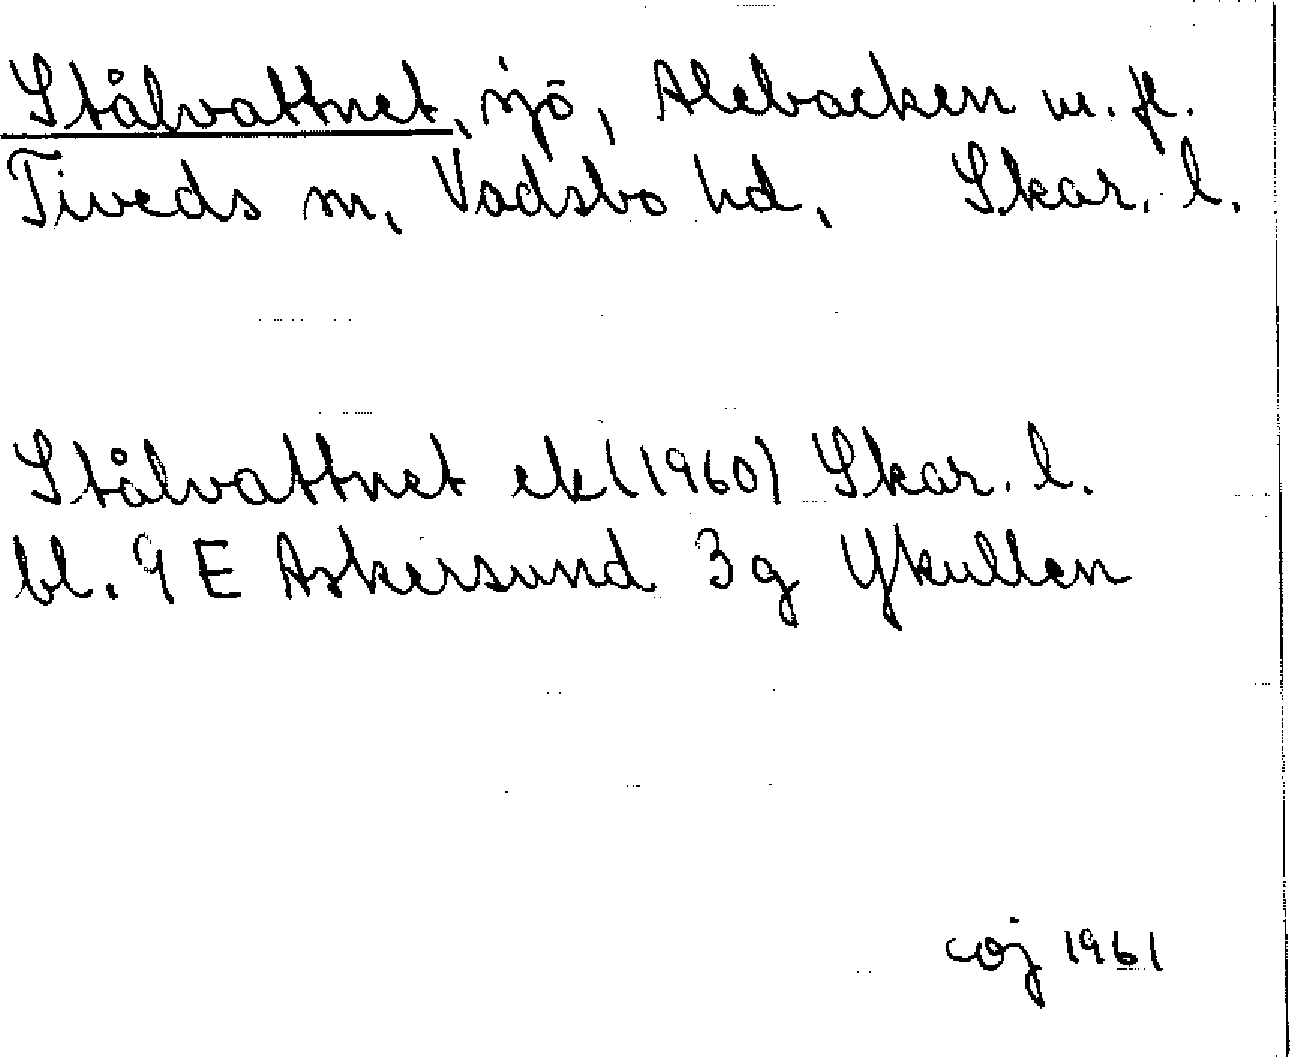 Stålvattnet, sjö, Alebacken m. fl.
Tiveds sn, Vadsbo hd, Skar. l.
Stålvattnet ek (1960) Skar. l.
bl. 9 E Askersund 3 g Ykullen
coj 1961